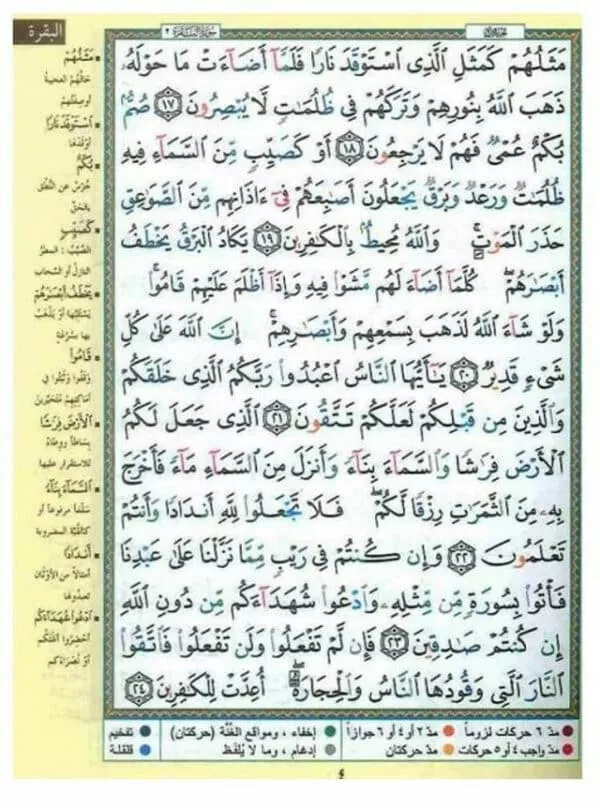 البقرة
مَثَلُهُمْ كَمَثَلِ ٱلَّذِى ٱسْتَوْقَدَ نَارًا فَلَمَّآ أَضَآءَتْ مَا حَوْلَهُۥ
ذَهَبَ ٱللَّهُ بِنُورِهِمْ وَتَرَكَهُمْ فِى ظُلُمَٰتٍ لَّا يُبْصِرُونَ ١٧ صُمٌّۢ
بُكْمٌ عُمْىٌ فَهُمْ لَا يَرْجِعُونَ ١٨ أَوْ كَصَيِّبٍ مِّنَ ٱلسَّمَآءِ فِيهِ
ظُلُمَٰتٌ وَرَعْدٌ وَبَرْقٌ يَجْعَلُونَ أَصَٰبِعَهُمْ فِىٓ ءَاذَانِهِم مِّنَ ٱلصَّوَٰعِقِ
حَذَرَ ٱلْمَوْتِ ۚ وَٱللَّهُ مُحِيطٌۢ بِٱلْكَٰفِرِينَ ١٩ يَكَادُ ٱلْبَرْقُ يَخْطَفُ
أَبْصَٰرَهُمْ ۖ كُلَّمَآ أَضَآءَ لَهُم مَّشَوْا۟ فِيهِ وَإِذَآ أَظْلَمَ عَلَيْهِمْ قَامُوا۟ ۚ
وَلَوْ شَآءَ ٱللَّهُ لَذَهَبَ بِسَمْعِهِمْ وَأَبْصَٰرِهِمْ ۚ إِنَّ ٱللَّهَ عَلَىٰ كُلِّ
شَىْءٍ قَدِيرٌ ٢٠ يَٰٓأَيُّهَا ٱلنَّاسُ ٱعْبُدُوا۟ رَبَّكُمُ ٱلَّذِى خَلَقَكُمْ
وَٱلَّذِينَ مِن قَبْلِكُمْ لَعَلَّكُمْ تَتَّقُونَ ٢١ ٱلَّذِى جَعَلَ لَكُمُ
ٱلْأَرْضَ فِرَٰشًا وَٱلسَّمَآءَ بِنَآءً وَأَنزَلَ مِنَ ٱلسَّمَآءِ مَآءً فَأَخْرَجَ
بِهِۦ مِنَ ٱلثَّمَرَٰتِ رِزْقًا لَّكُمْ ۖ فَلَا تَجْعَلُوا۟ لِلَّهِ أَندَادًا وَأَنتُمْ
تَعْلَمُونَ ٢٢ وَإِن كُنتُمْ فِى رَيْبٍ مِّمَّا نَزَّلْنَا عَلَىٰ عَبْدِنَا
فَأْتُوا۟ بِسُورَةٍ مِّن مِّثْلِهِۦ وَٱدْعُوا۟ شُهَدَآءَكُم مِّن دُونِ ٱللَّهِ
إِن كُنتُمْ صَٰدِقِينَ ٢٣ فَإِن لَّمْ تَفْعَلُوا۟ وَلَن تَفْعَلُوا۟ فَٱتَّقُوا۟
ٱلنَّارَ ٱلَّتِى وَقُودُهَا ٱلنَّاسُ وَٱلْحِجَارَةُ ۖ أُعِدَّتْ لِلْكَٰفِرِينَ ٢٤
مَثَلُهُمْ
حالُهُمُ العجيبةُ
أو صِفَتُهم
ٱسْتَوْقَدَ نَارًا
أوْقَدَها
بُكْمٌ
خُرْسٌ عن النُّطْقِ
بالحَقِّ
كَصَيِّبٍ
الصَّيِّبُ : المطرُ
النازلُ أو السّحابُ
يَخْطَفُ أَبْصَٰرَهُمْ
يَسْتَلِبُها أو يَذْهَبُ
بها بسُرْعَةٍ
قَامُوا۟
وَقَفُوا وثَبَتُوا في
أماكنهِمْ مُتَحَيِّرينَ
ٱلْأَرْضَ فِرَٰشًا
بِسَاطاً ووِطاءً
للاستقرارِ عليها
ٱلسَّمَآءَ بِنَآءً
سَقْفاً مرفوعاً أو
كالقُبَّةِ المضروبةِ
أَندَادًا
أمثالاً من الأوْثانِ
تعبدُونَها
ٱدْعُوا۟ شُهَدَآءَكُم
أحْضِرُوا آلِهَتَكُمْ
أوْ نُصَرَاءَكم
مدّ ٦ حركات لزوماً مدّ ٢ أو ٤ أو ٦ جوازاً إخفاء ، ومواقع الغُنَّة (حركتان) تفخيم
مدّ واجب ٤ أو ٥ حركات مدّ حركتان إدغام ، وما لا يُلفَظ قلقلة
٤